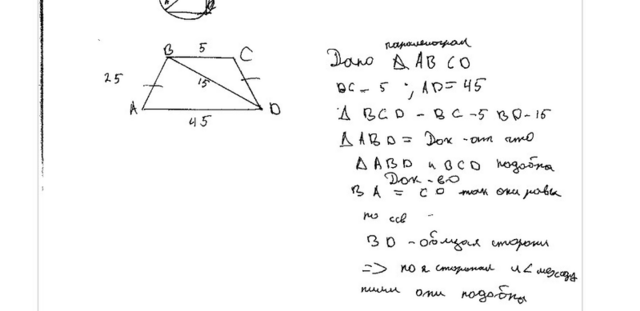 B 5 C
25
15
A D
45
параллелограм
Дано Δ ABCD
BC - 5 ; AD = 45
Δ BCD - BC - 5 BD - 15
Δ ABD = Док - ать что
Δ ABD и BCD подобны
Док - во
BA = CD так они равны
по
BD - общая сторона
=> по 2 сторонам и ∠ между
ними они подобны